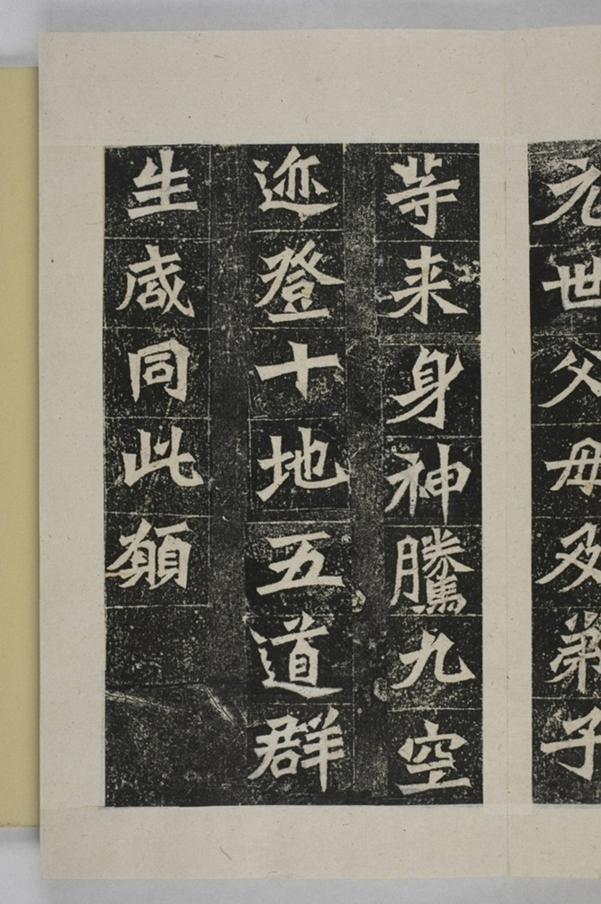 元世父母及弟子
等来身神騰九空
迩登十地五道群
生咸同此願